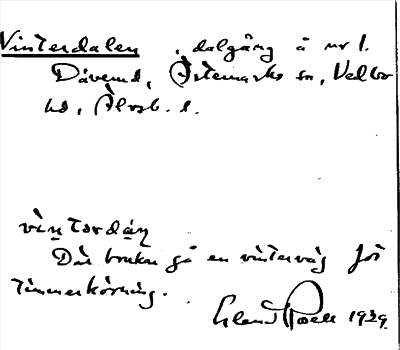 Vinterdalen, dalgång å nr 1.
Dåvemd, Östemarks sn, Vedbo
hd, Älvsb. l.
vìntərdán
Där brukar gå en vinterväg för
timmerkörning.
1929.